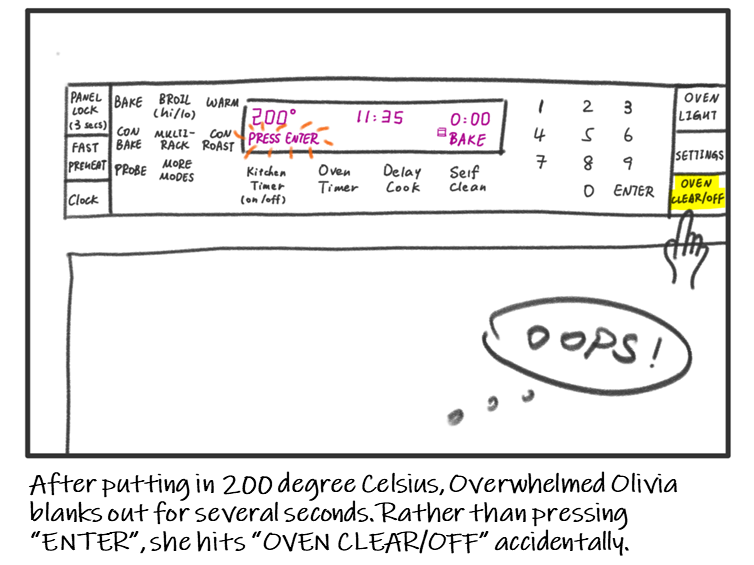 PANEL LOCK (3 secs)
FAST PREHEAT
Clock
BAKE
BROIL (hi/lo)
WARM
CON BAKE
MULTI-RACK
CON ROAST
PROBE
MORE MODES
200° 11:35 0:00
PRESS ENTER BAKE
Kitchen Timer (on/off)
Oven Timer
Delay Cook
Self Clean
1 2 3
4 5 6
7 8 9
0 ENTER
OVEN LIGHT
SETTINGS
OVEN CLEAR/OFF
OOPS!
After putting in 200 degree Celsius, Overwhelmed Olivia
blanks out for several seconds. Rather than pressing
“ENTER”, she hits “OVEN CLEAR/OFF” accidentally.